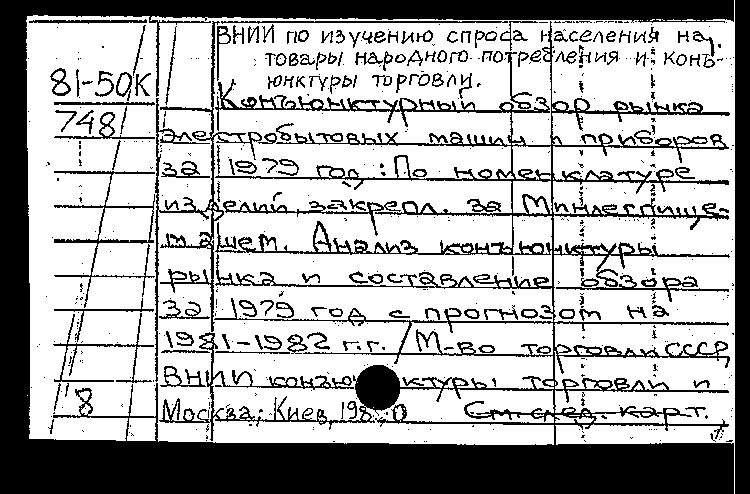 ВНИИ по изучению спроса населения на
товары народного потребления и конъ-
юнктуры торговли.
81-50К
Конъюнктурный обзор рынка
748
электробытовых машин и приборов
за 1979 год : По номенклатуре
изделий, закрепл. за Минлегпище-
машем. Анализ конъюнктуры
рынка и составление обзора
за 1979 год с прогнозом на
1981-1982 г.г. / М-во торговли СССР,
ВНИИ конъюнктуры торговли и
8
Москва; Киев, 1980 См. след. карт.